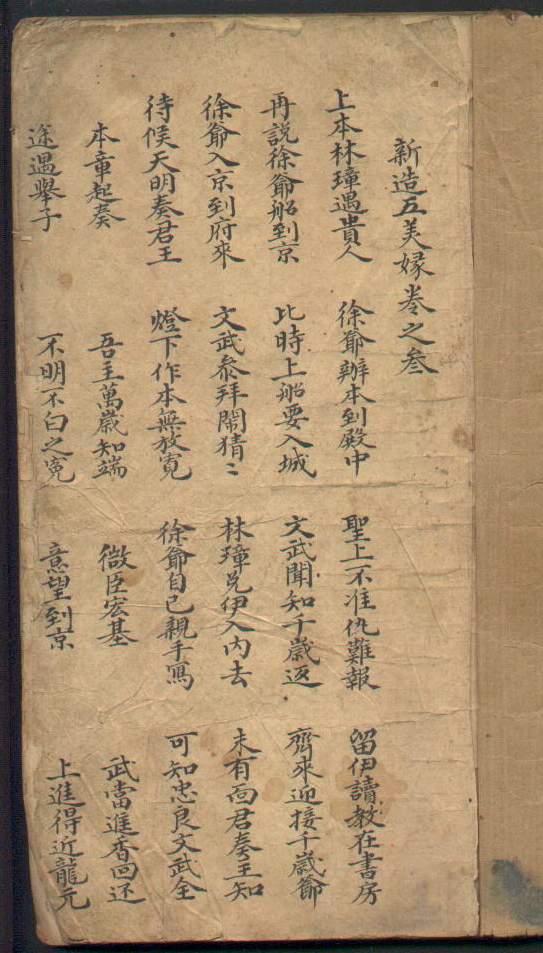 新造五美緣卷之叁
上本林璋遇貴人 徐爺辦本到殿中 聖上不准仇難報 留伊讀教在書房
再說徐爺船到京 比時上船要入城 文武聞知千歲返 齊來迎接千歲爺
徐爺入京到府來 文武叅拜鬧猜〻 林璋兄伊入內去 未有面君奏王知
待候天明奏君王 燈下作本無放寬 徐爺自己親手寫 可知忠良文武全
本章起奏 吾主萬歲知端 微臣宏基 武當進香回还
途遇舉子 不明不白之寃 意望到京 上進得近龍元